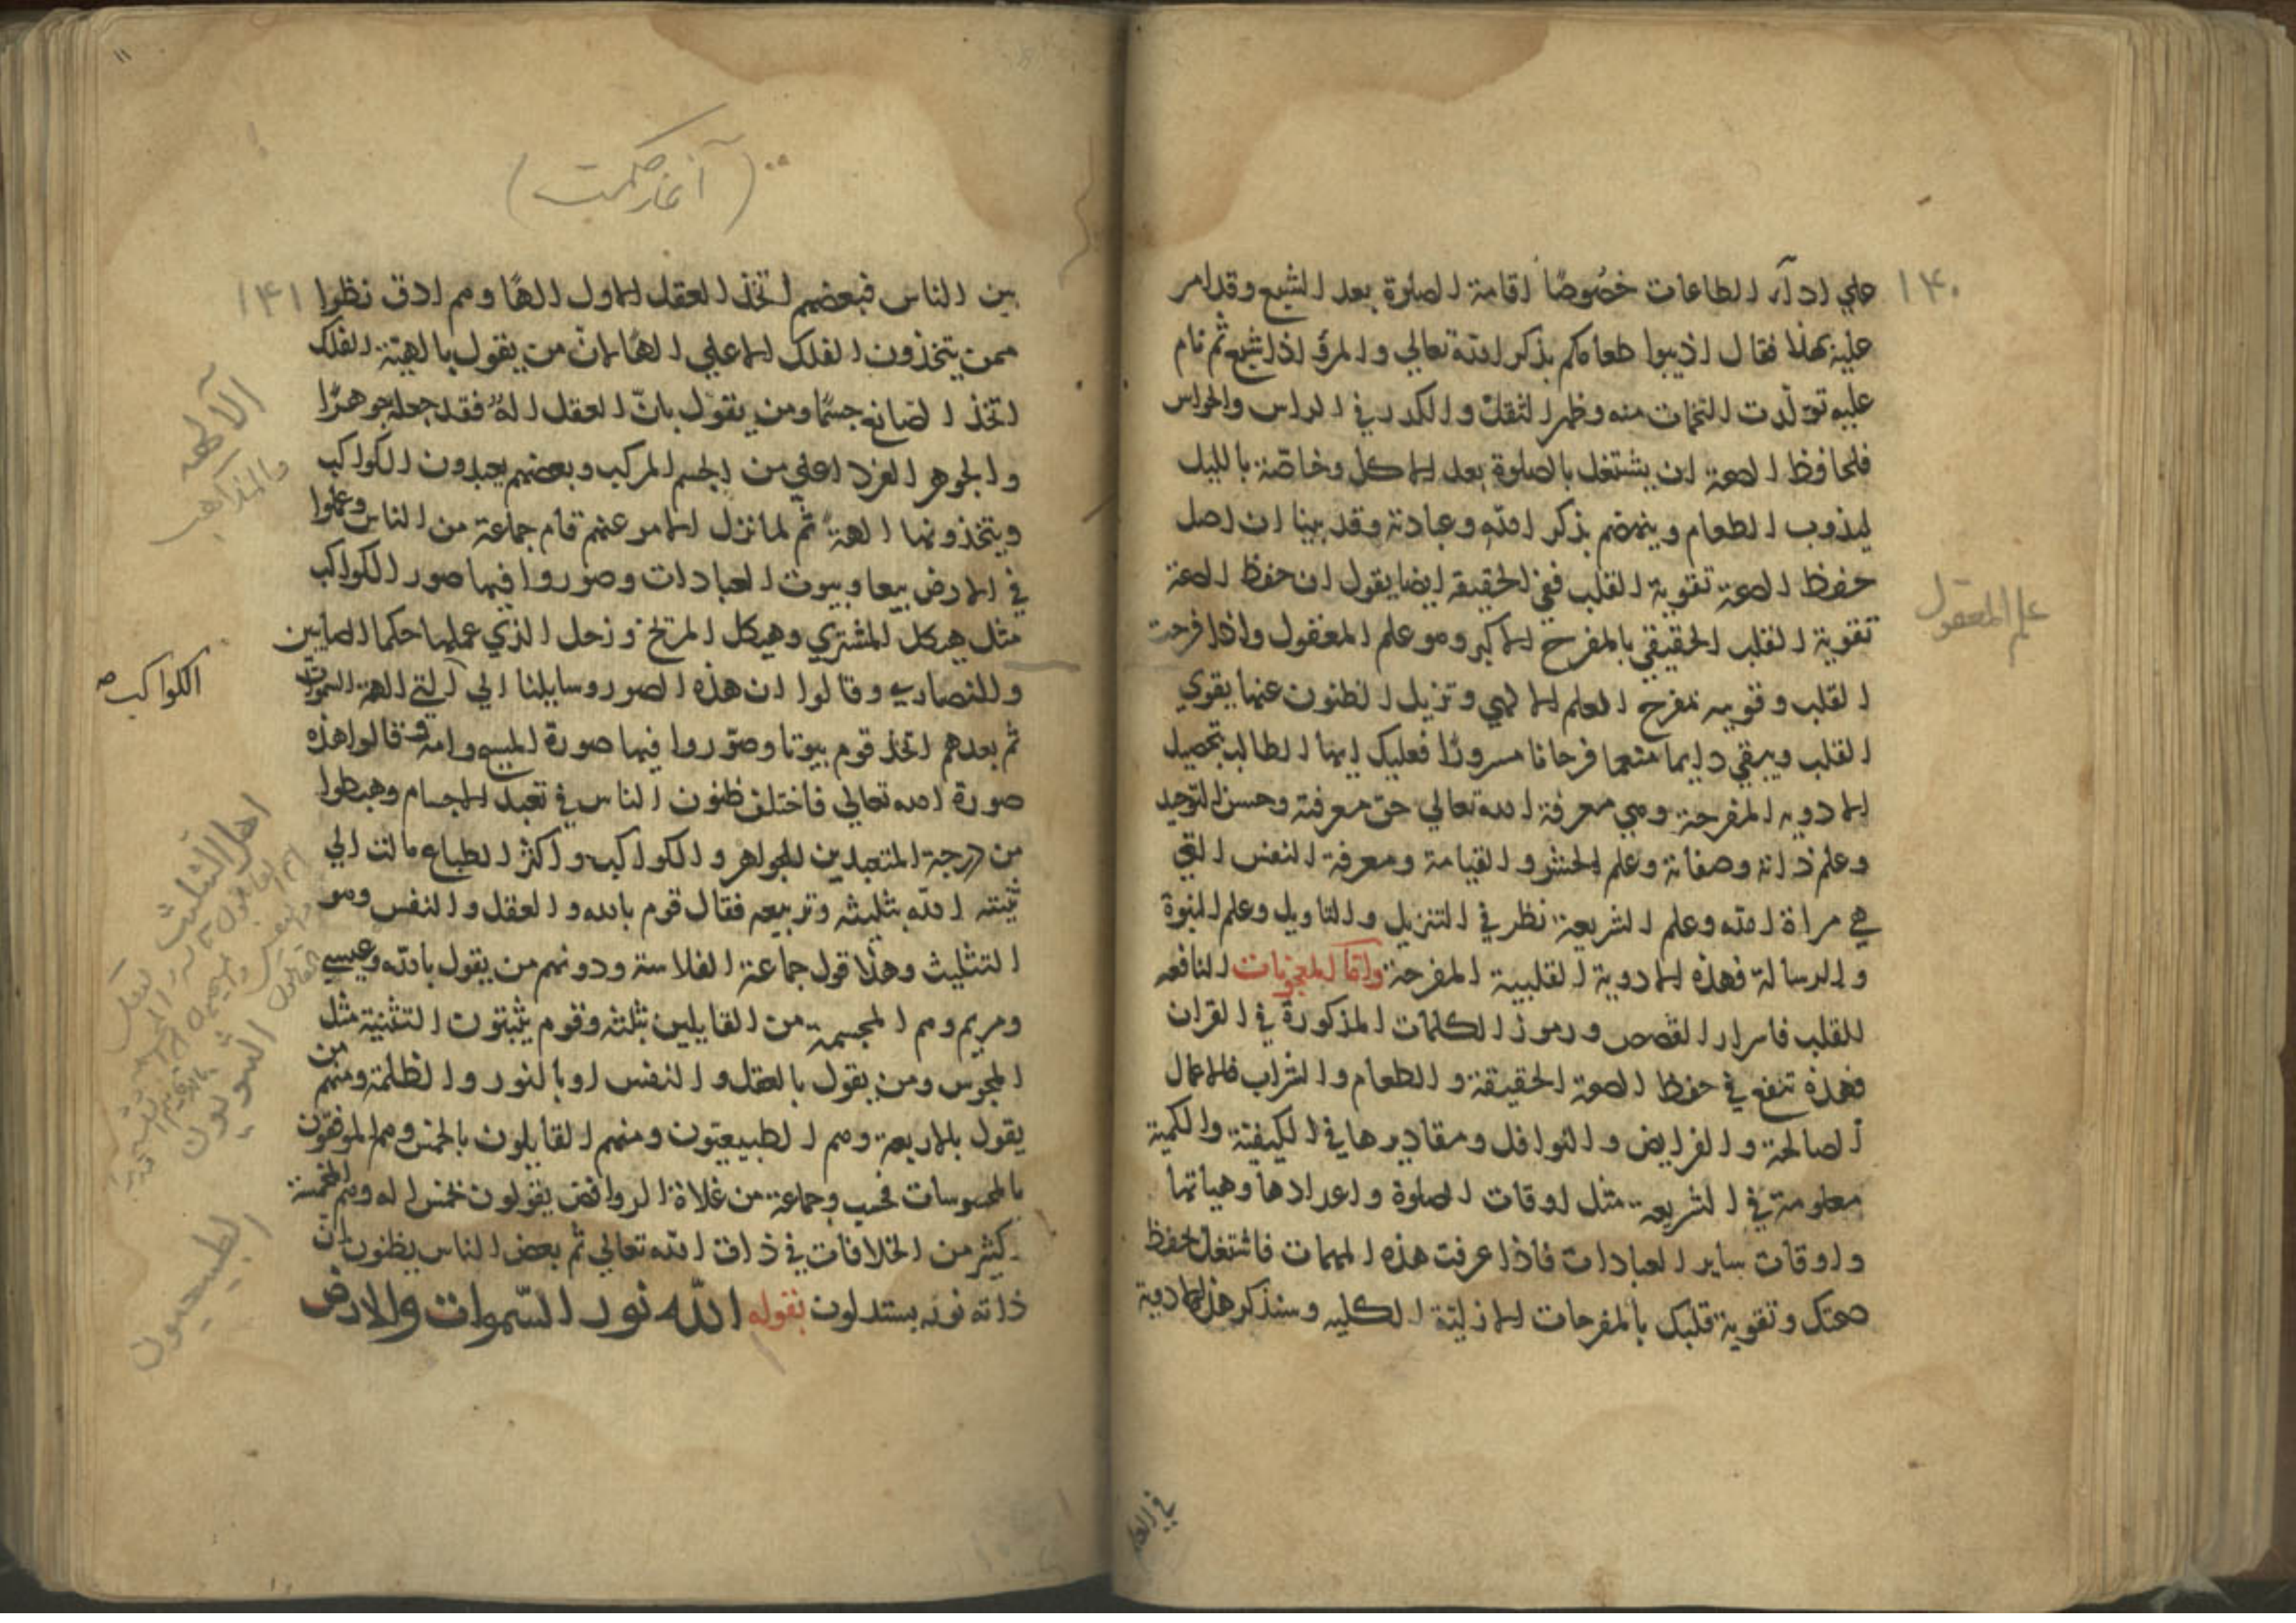 ١٤٠
علي ادآء الطاعات خصُوصًا اقامة الصلوة بعد الشبع وقد امر
عليه بهذا فقال اذيبوا طعامكم بذكر الله تعالي والمرؤ اذا شبع ثم نام
عليه تولّدت التخمات منه وظهر الثقل والكدر في الراس والحواس
فلحافظ الصحة ان يشتغل بالصلوة بعد الاكل وخاصّة بالليل
ليذوب الطعام وينهضم بذكر الله وعبادته وقد بينا ان اصل
حفظ الصحة تقوية القلب ففي الحقيقه ايضا يقول ان حفظ الصحة
تقوية القلب الحقيقي بالمفرح الاكبر وهو علم المعقول واذا فرحت
القلب وقويته بمفرح العلم الالهي وتزيل الظنون عنها يقوي
القلب ويبقي دايما متنعما فرحانا مسرورًا فعليك ايها الطالب بتحصيل
الادويه المفرحة وهي معرفة الله تعالي حق معرفته وحسن التوحيد
وعلم ذاته وصفاته وعلم الحشر والقيامة ومعرفة النفس التي
هي مراة الله وعلم الشريعة نظر في التنزيل والتاويل وعلم النبوة
والرسالة فهذه الادوية القلبية المفرحة وامّا المعجونات النافعه
للقلب فاسرار القصص ورموز الكلمات المذكورة في القران
فهذه تنفع في حفظ الصحة الحقيقة والطعام والشراب فالاعمال
الصالحة والفرايض والنوافل ومقاديرها في الكيفيّة والكمية
معلومة في الشريعة مثل اوقات الصلوة واعدادها وهياتها
واوقات ساير العبادات فاذا عرفت هذه المهمات فاشتغل بحفظ
صحتك وتقوية قلبك بالمفرحات الازليّة الكليه وسنذكر هذه الادوية
علم المعقول
(آغاز حكمت)
١٤١
بين الناس فبعضهم اتخذ العقل الاول الهًا وهم ادق نظرا
ممن يتخذون الفلك الاعلي الهًا لانّ من يقول بالهيّة الفلك
اتخذ الصانع جسمًا ومن يقول بانّ العقل الهٌ فقد جعله جوهرًا
والجوهر الفرد اعلي من الجسم المركب وبعضهم يعبدون الكواكب
ويتخذونها الهة ثم لما نزل الامر عنهم قام جماعة من الناس وعملوا
في الارض بيعا وبيوت العبادات وصوروا فيها صور الكواكب
مثل هيكل المشتري وهيكل المريخ وزحل الذي عملها حكما الصابين
وللنصاري وقالوا ان هذه الصور وسايلنا الي الهة السموات
ثم بعدهم اتخذ قوم بيوتا وصوّروا فيها صورة المسيح وامه وقالوا هذه
صورة الله تعالي فاختلف ظنون الناس في تعبد الاجسام وهبطوا
من درجة المتعبدين للجواهر والكواكب واكثر الطباع مالت الي
الله بتثليثه وتربيعه فقال قوم بالله والعقل والنفس وهو
التثليث وهذا قول جماعة الفلاسفة ودونهم من يقول بالله وعيسي
ومريم وهم المجسمة من القايلين بثلثة وقوم يثبتون التثنية مثل
المجوس ومن يقول بالعقل والنفس او بالنور والظلمة ومنهم من
يقول بالاربعة وهم الطبيعيّون ومنهم القايلون بالخمس وهم
بالمحسوسات فحسب وجماعة من غلاة الروافض يقولون خمس اله وهم المخمسة
كثير من الخلافات في ذات الله تعالي ثم بعض الناس يظنون ان
ذاته نور يستدلون بقوله الله نور السّموات والارض
الآلهه
والمذاهب
الكواكب
اهل التثليث
الثنويون
الطبيعيون